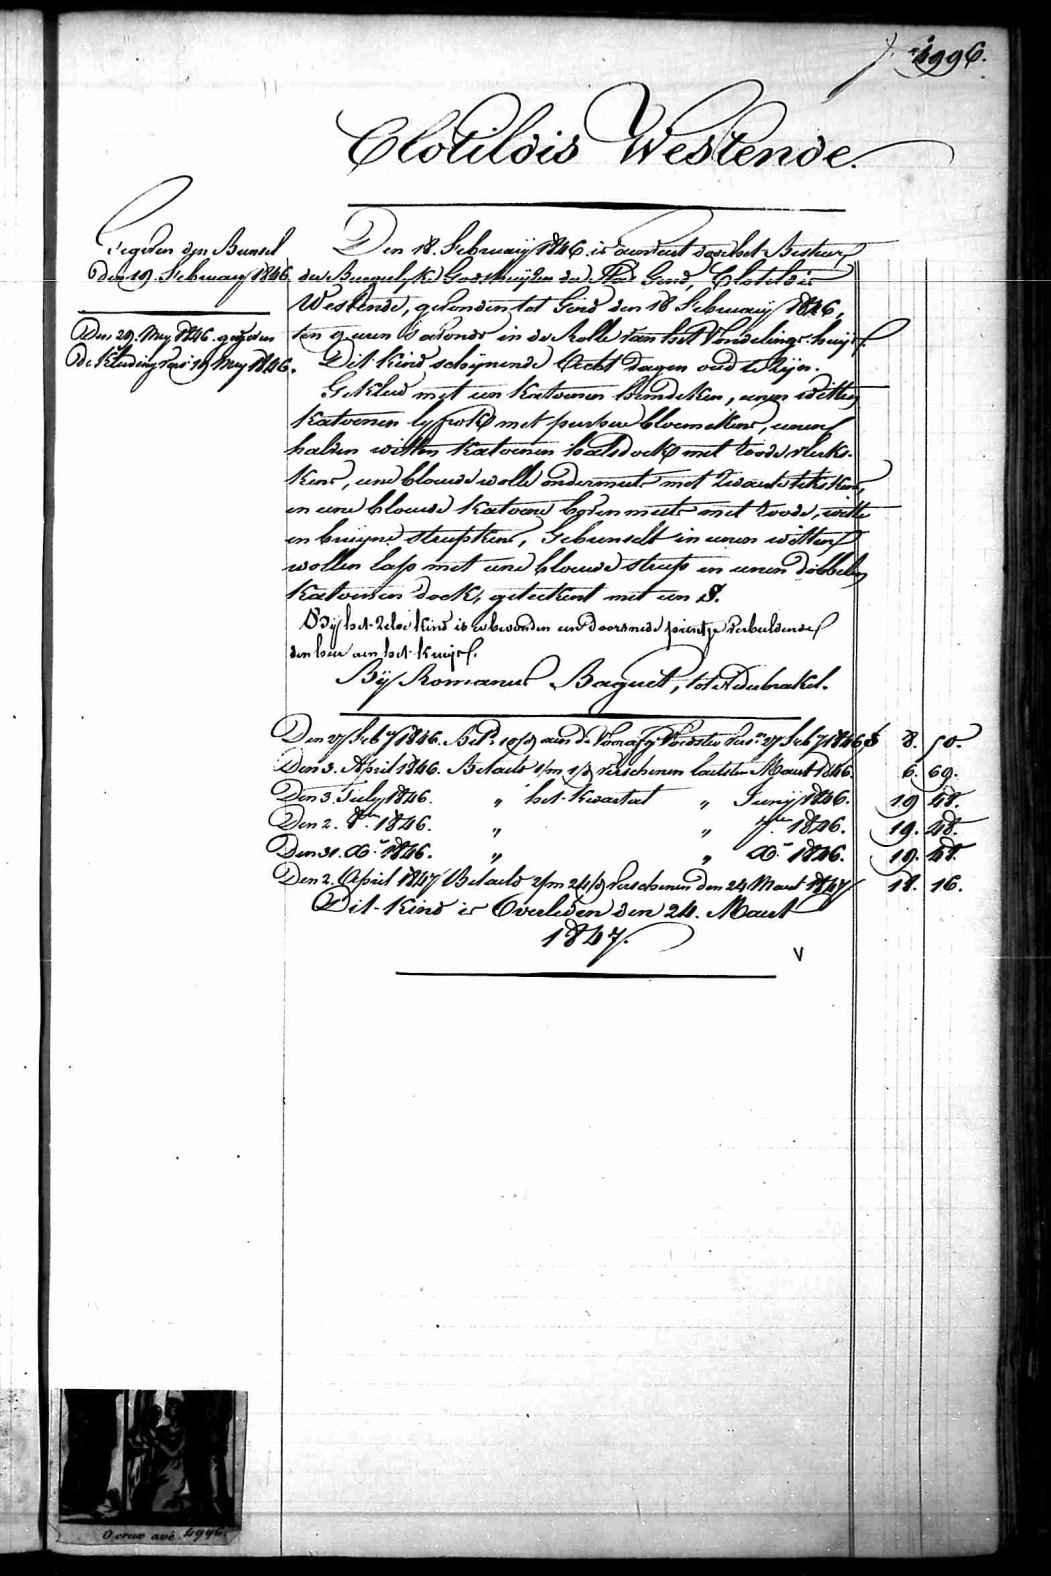 4996.
Clotildis Westende.
Gegeven een Bunsel
den 19. February 1846
Den 29. Mey 1846. gegeven
de Kleeding van 19 Mey 1846.
Den 18 February 1846. is aenveerd door het Bestuer
der Burgerlyke Godshuyzen der Stad Gend, Clotildis
Westende, gevonden tot Gend den 18 February 1846,
ten 9 uren s'avonds in de Rolle van het Vondelings-huys.
Dit kind schynende Acht dagen oud te zyn.
Gekleed met een katoenen hemdeken, eenen witten
katoenen lyfrok met purper bloemekens, eenen
halven witten katoenen halsdoek met roode vlekskens,
kens, eene blauwe wolle ondermuts met zwarte stekskens,
en eene blauwe katoene bovenmuts met roode, witte
en bruyne streepkens, Gebunselt in eenen witten
wollen lap met eene blauwe streep en eenen dobbelen
katoenen doek, geteekent met een S.
By het zelve kind is gebonden een doorsnede prentje verbeldende
den heer aen het kruys.
By Romanus Baguet, tot Nederbrakel.
Den 27 Feb.y 1846. Bet. 10/9 aen de Voorafg. Voedster 27 Feb.y 1846 8. 50.
Den 3. April 1846. Betaeld 1/m 1/d verschenen laetsten Maert 1846. 6. 69.
Den 3. July 1846. " het kwartael " Juny 1846. 19 48.
Den 2. 8.er 1846. " " 7.er 1846. 19. 48.
Den 31. X.er 1846. " " X.er 1846. 19. 48.
Den 2. April 1847 Betaeld 2/m 24/d verschenen den 24 Maert 1847 18. 16.
Dit kind is Overleden den 24. Maert
1847.
V
O crux avé 4996.